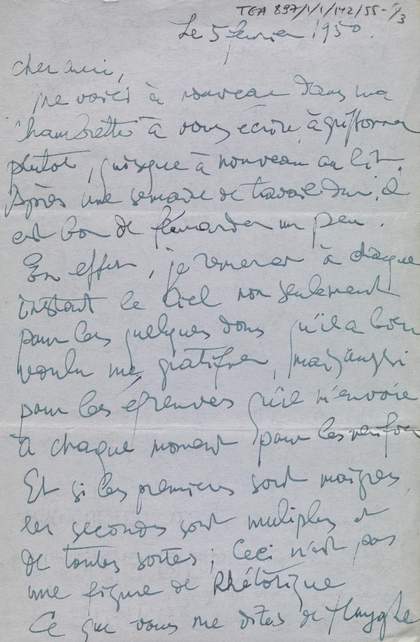 TGA 897/1/1/142/55-1/3
Le 5 février 1950.
Cher ami,
me voici à nouveau dans ma
chambrette à vous écrire, à griffonner
plutôt, puisque à nouveau au lit.
Après une semaine de travail dur, il
est bon de flémarder un peu.
En effet, je remercie à chaque
instant le Ciel non seulement
pour les quelques dons qu'il a bien
voulu me gratifier, mais aussi
pour les épreuves qu'il m'envoie
à chaque moment pour les
Et si les premiers sont maigres
les secondes sont multiples et
de toutes sortes ; Ceci n'est pas
une figure de Rhétorique
Ce que vous me dites de Huyghe